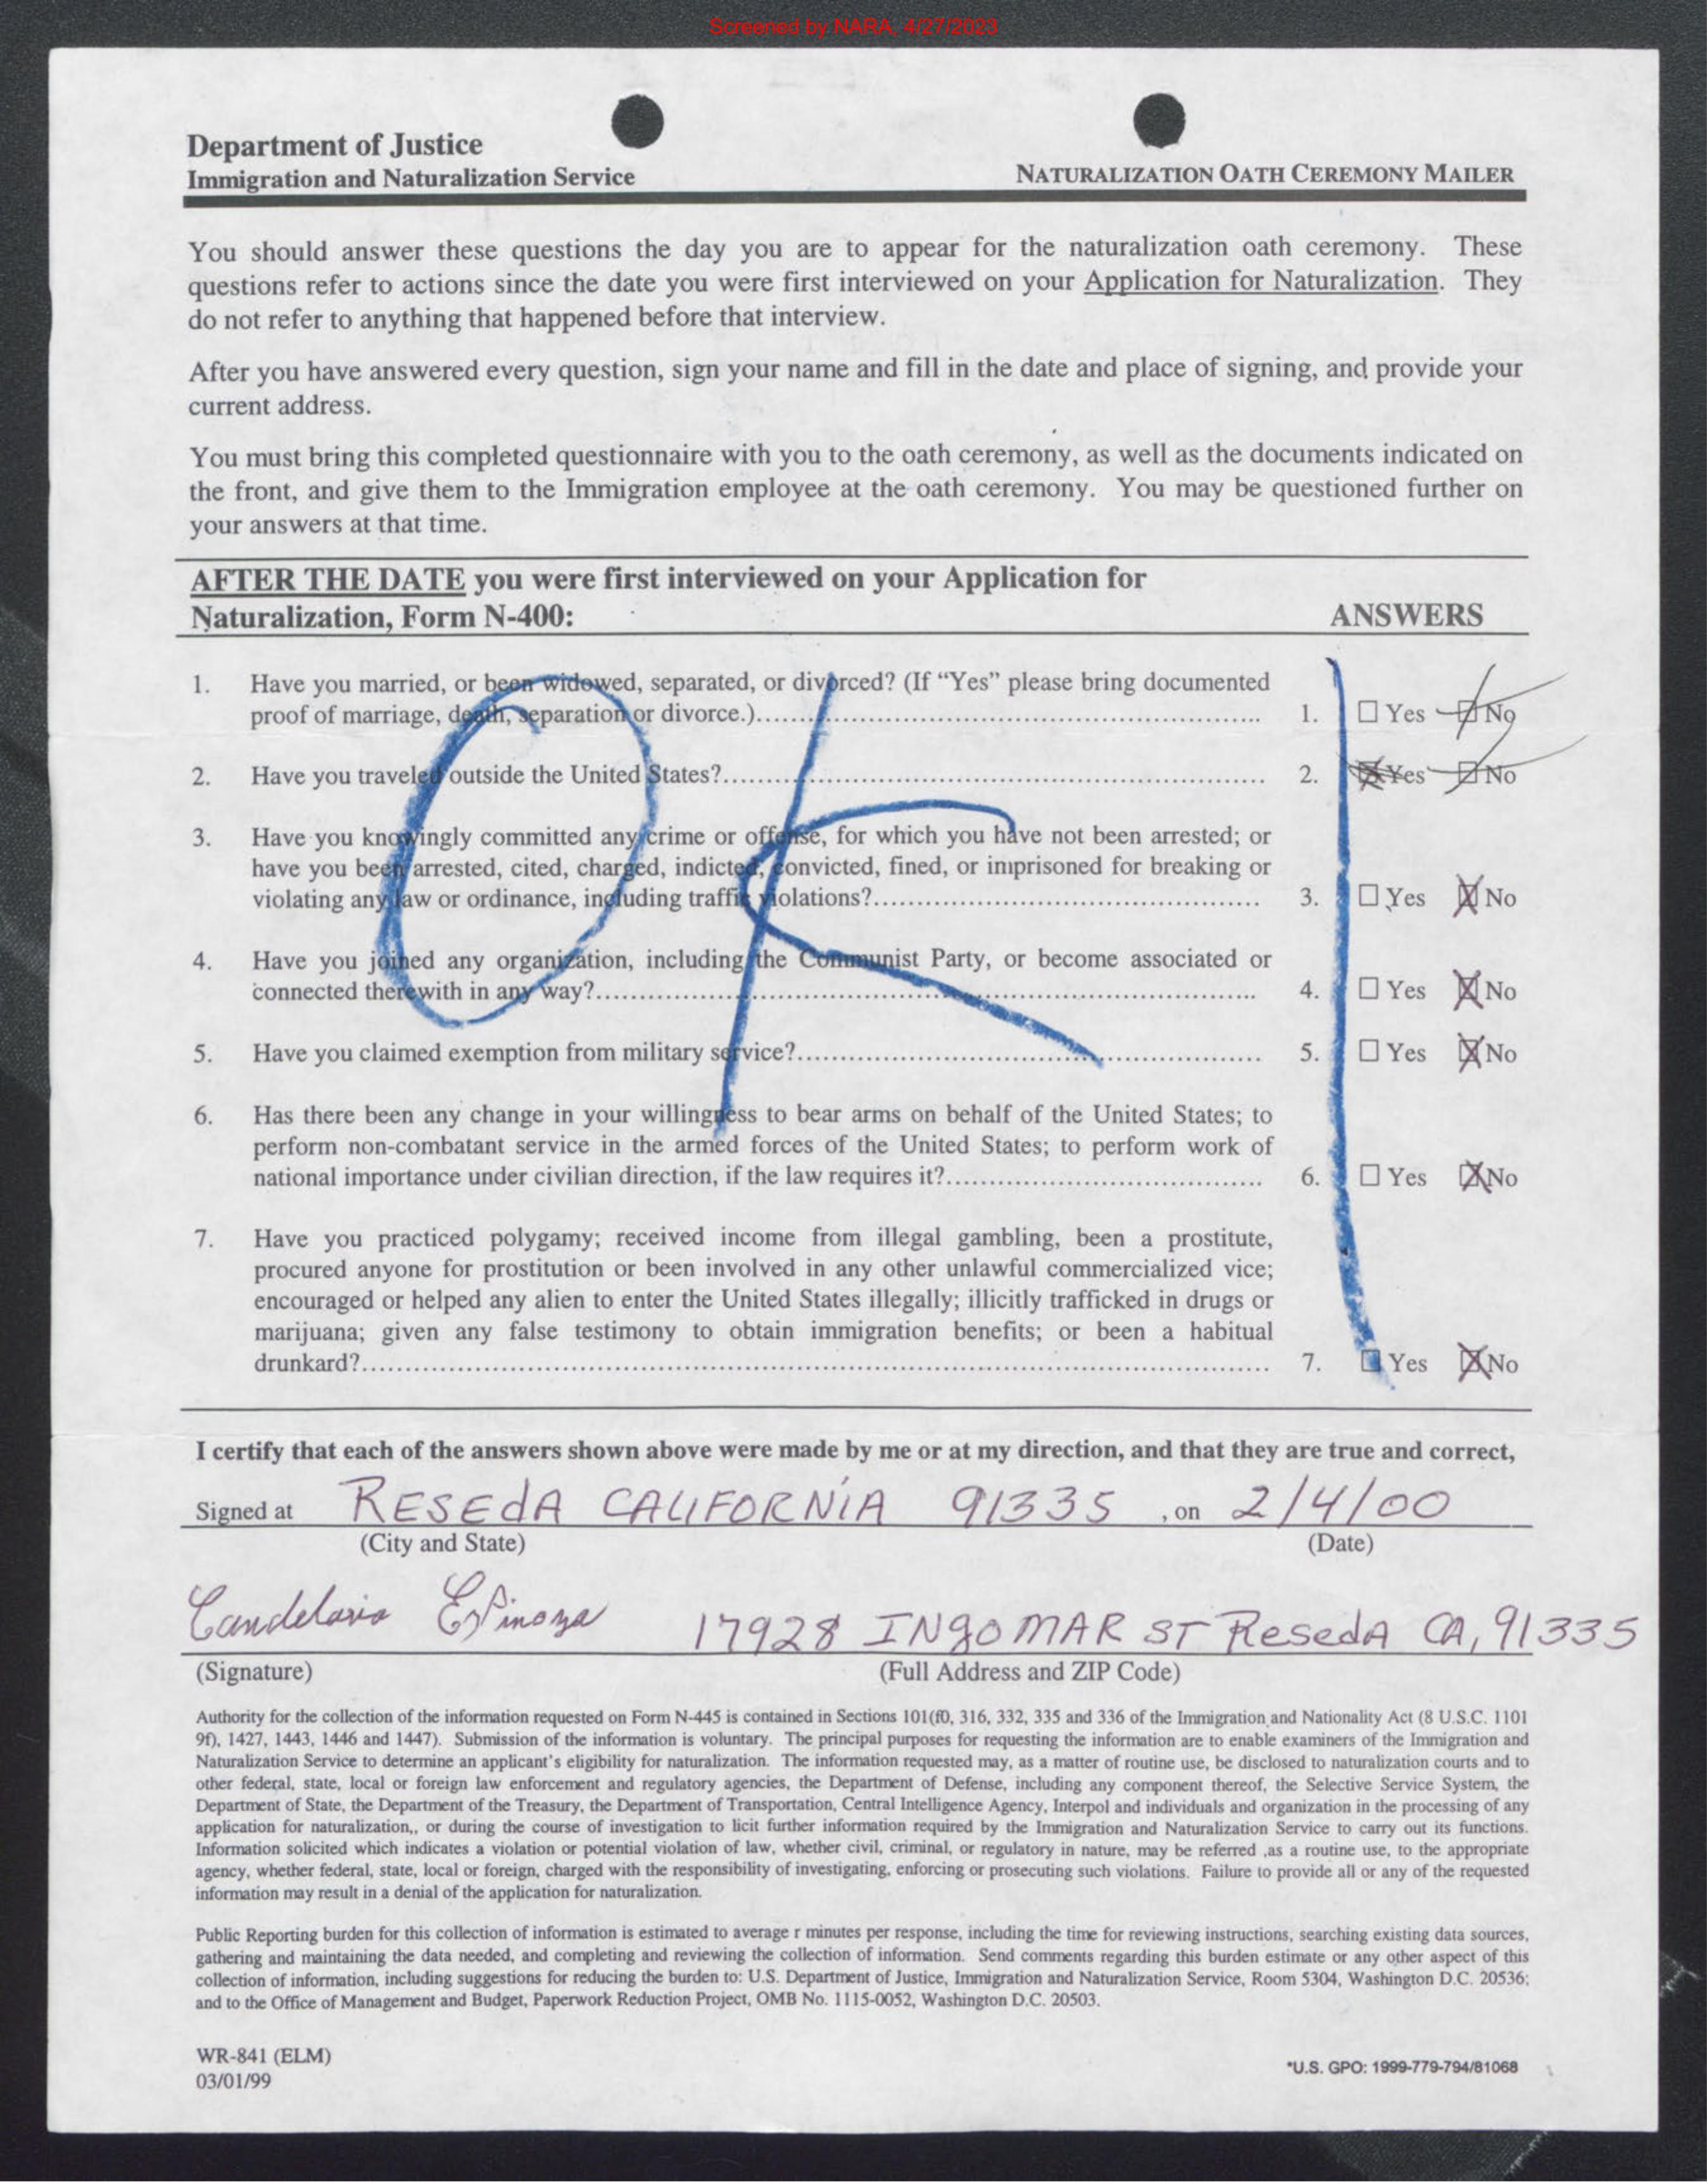 Screened by NARA, 4/27/2023
Department of Justice
Immigration and Naturalization Service
NATURALIZATION OATH CEREMONY MAILER
You should answer these questions the day you are to appear for the naturalization oath ceremony. These
questions refer to actions since the date you were first interviewed on your Application for Naturalization. They
do not refer to anything that happened before that interview.
After you have answered every question, sign your name and fill in the date and place of signing, and provide your
current address.
You must bring this completed questionnaire with you to the oath ceremony, as well as the documents indicated on
the front, and give them to the Immigration employee at the oath ceremony. You may be questioned further on
your answers at that time.
AFTER THE DATE you were first interviewed on your Application for
Naturalization, Form N-400:
ANSWERS
OK
1. Have you married, or been widowed, separated, or divorced? (If “Yes” please bring documented
proof of marriage, death, separation or divorce.)........ 1. ☐ Yes ☒ No
2. Have you traveled outside the United States?........ 2. ☒ Yes ☒ No
3. Have you knowingly committed any crime or offense, for which you have not been arrested; or
have you been arrested, cited, charged, indicted, convicted, fined, or imprisoned for breaking or
violating any law or ordinance, including traffic violations?........ 3. ☐ Yes ☒ No
4. Have you joined any organization, including the Communist Party, or become associated or
connected therewith in any way?........ 4. ☐ Yes ☒ No
5. Have you claimed exemption from military service?........ 5. ☐ Yes ☒ No
6. Has there been any change in your willingness to bear arms on behalf of the United States; to
perform non-combatant service in the armed forces of the United States; to perform work of
national importance under civilian direction, if the law requires it?........ 6. ☐ Yes ☒ No
7. Have you practiced polygamy; received income from illegal gambling, been a prostitute,
procured anyone for prostitution or been involved in any other unlawful commercialized vice;
encouraged or helped any alien to enter the United States illegally; illicitly trafficked in drugs or
marijuana; given any false testimony to obtain immigration benefits; or been a habitual
drunkard?........ 7. ☐ Yes ☒ No
I certify that each of the answers shown above were made by me or at my direction, and that they are true and correct,
Signed at RESEdA CALIFORNiA 91335 , on 2/4/00
(City and State) (Date)
Candelario Espinoza 17928 INgOMAR ST ResedA CA, 91335
(Signature) (Full Address and ZIP Code)
Authority for the collection of the information requested on Form N-445 is contained in Sections 101(f0, 316, 332, 335 and 336 of the Immigration and Nationality Act (8 U.S.C. 1101
9f), 1427, 1443, 1446 and 1447). Submission of the information is voluntary. The principal purposes for requesting the information are to enable examiners of the Immigration and
Naturalization Service to determine an applicant's eligibility for naturalization. The information requested may, as a matter of routine use, be disclosed to naturalization courts and to
other federal, state, local or foreign law enforcement and regulatory agencies, the Department of Defense, including any component thereof, the Selective Service System, the
Department of State, the Department of the Treasury, the Department of Transportation, Central Intelligence Agency, Interpol and individuals and organization in the processing of any
application for naturalization,, or during the course of investigation to licit further information required by the Immigration and Naturalization Service to carry out its functions.
Information solicited which indicates a violation or potential violation of law, whether civil, criminal, or regulatory in nature, may be referred ,as a routine use, to the appropriate
agency, whether federal, state, local or foreign, charged with the responsibility of investigating, enforcing or prosecuting such violations. Failure to provide all or any of the requested
information may result in a denial of the application for naturalization.
Public Reporting burden for this collection of information is estimated to average r minutes per response, including the time for reviewing instructions, searching existing data sources,
gathering and maintaining the data needed, and completing and reviewing the collection of information. Send comments regarding this burden estimate or any other aspect of this
collection of information, including suggestions for reducing the burden to: U.S. Department of Justice, Immigration and Naturalization Service, Room 5304, Washington D.C. 20536;
and to the Office of Management and Budget, Paperwork Reduction Project, OMB No. 1115-0052, Washington D.C. 20503.
WR-841 (ELM)
03/01/99
*U.S. GPO: 1999-779-794/81068